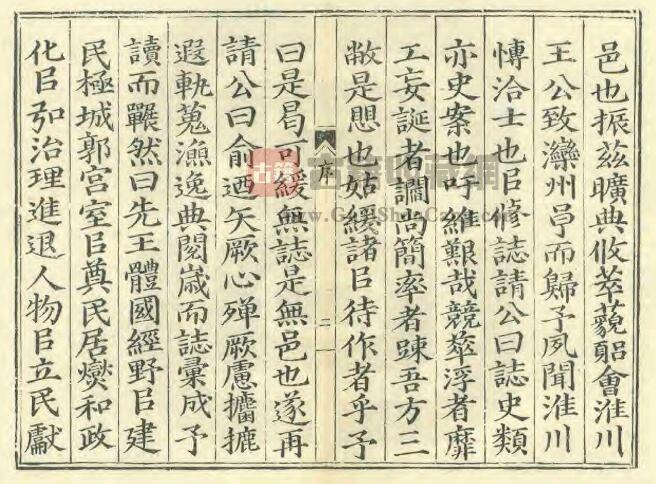 邑也振茲曠典攸萃會淮川
王公致灤州而歸予夙聞淮川
博洽士也㠯修誌請公曰誌史類
亦史案也吁維艱哉競華浮者靡
工妄誕者讕尚簡率者踈吾方三
敝是愳也姑緩諸㠯待作者乎予
序
二
曰是曷可緩無誌是無邑也遂再
請公曰俞迺矢厥心殫厥慮攟摭
遐軌蒐漁逸典閱歲而誌彙成予
讀而囅然曰先王體國經野㠯建
民極城郭宮室㠯奠民居爕和政
化㠯弘治理進退人物㠯立民獻